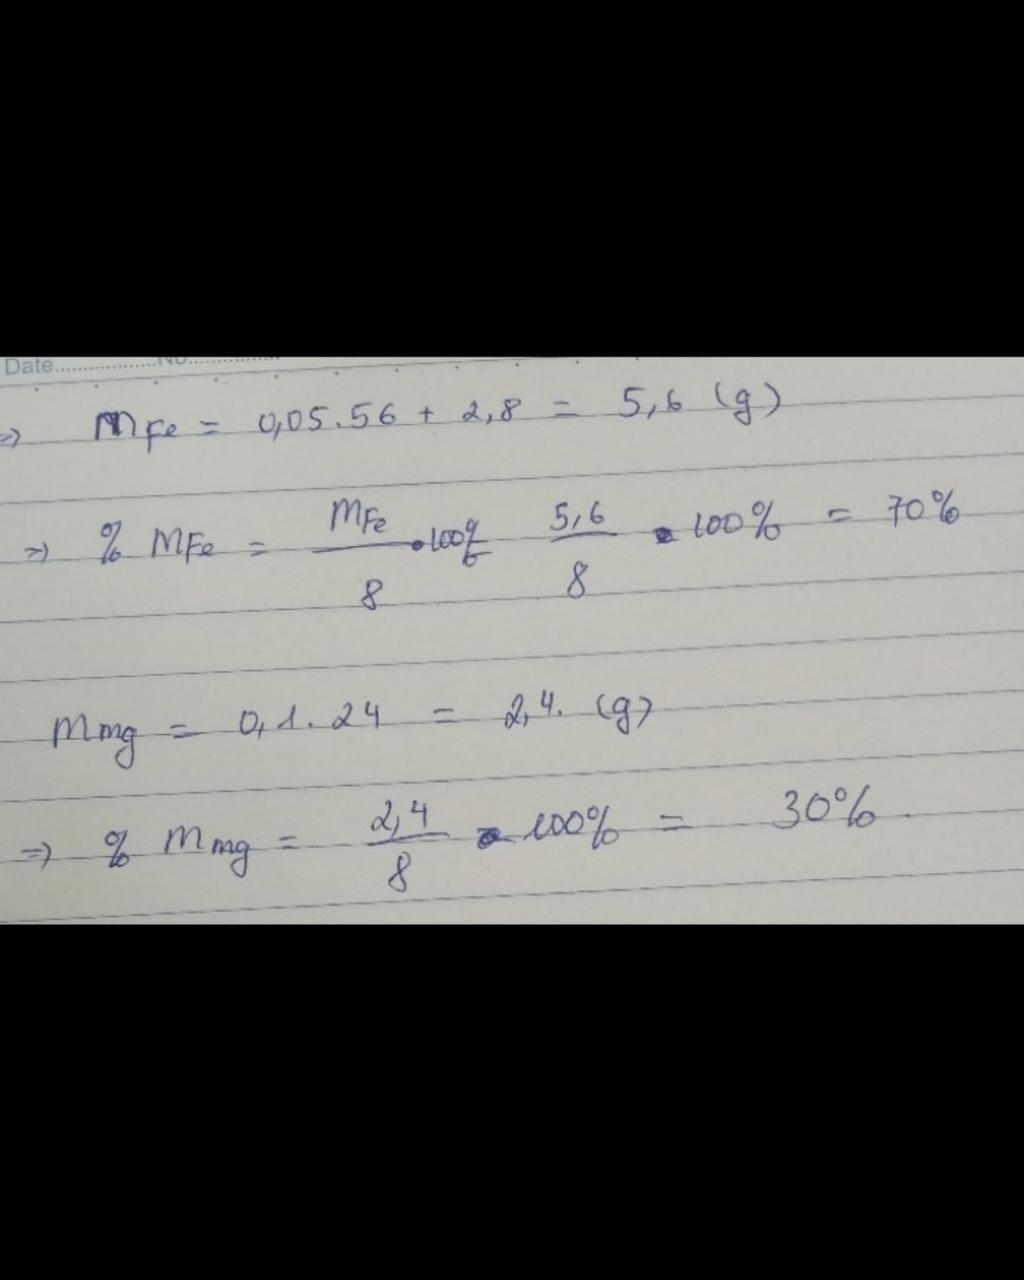 Date..................No................
=> mFe = 0,05.56 + 2,8 = 5,6 (g)
=> % MFe = MFe/8 . 100% 5,6/8 . 100% = 70%
Mmg = 0,1.24 = 2,4. (g)
=> % Mmg = 2,4/8 . 100% = 30%.